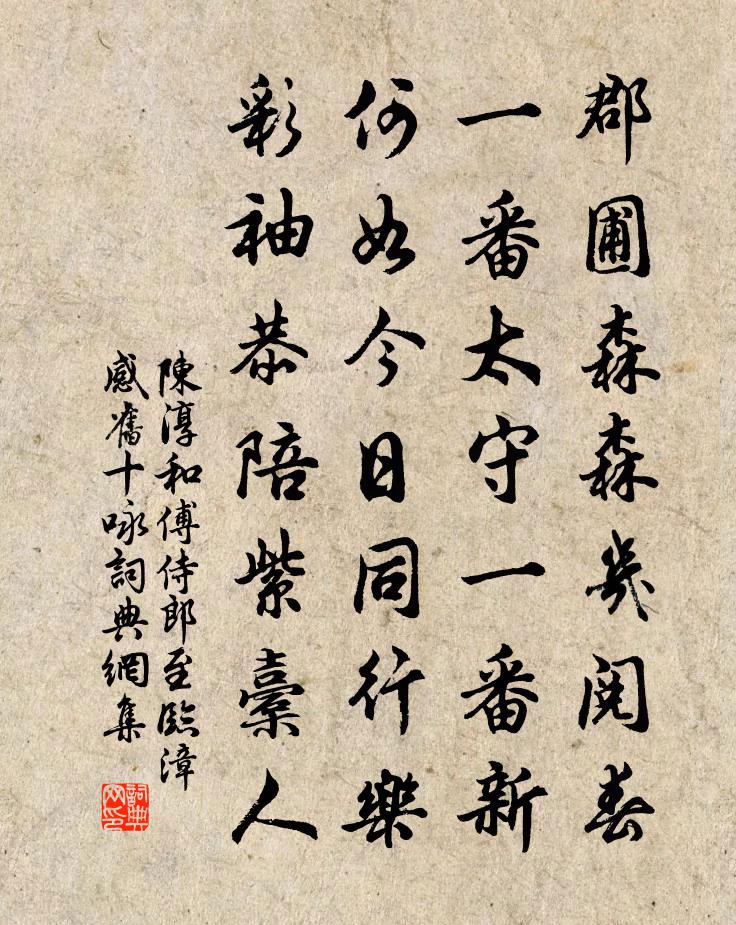 郡圃森森幾閱春
一番太守一番新
何如今日同行樂
彩袖恭陪紫橐人
陳淳和傅侍郎至臨漳
感舊十咏詞典網集
詞典网印